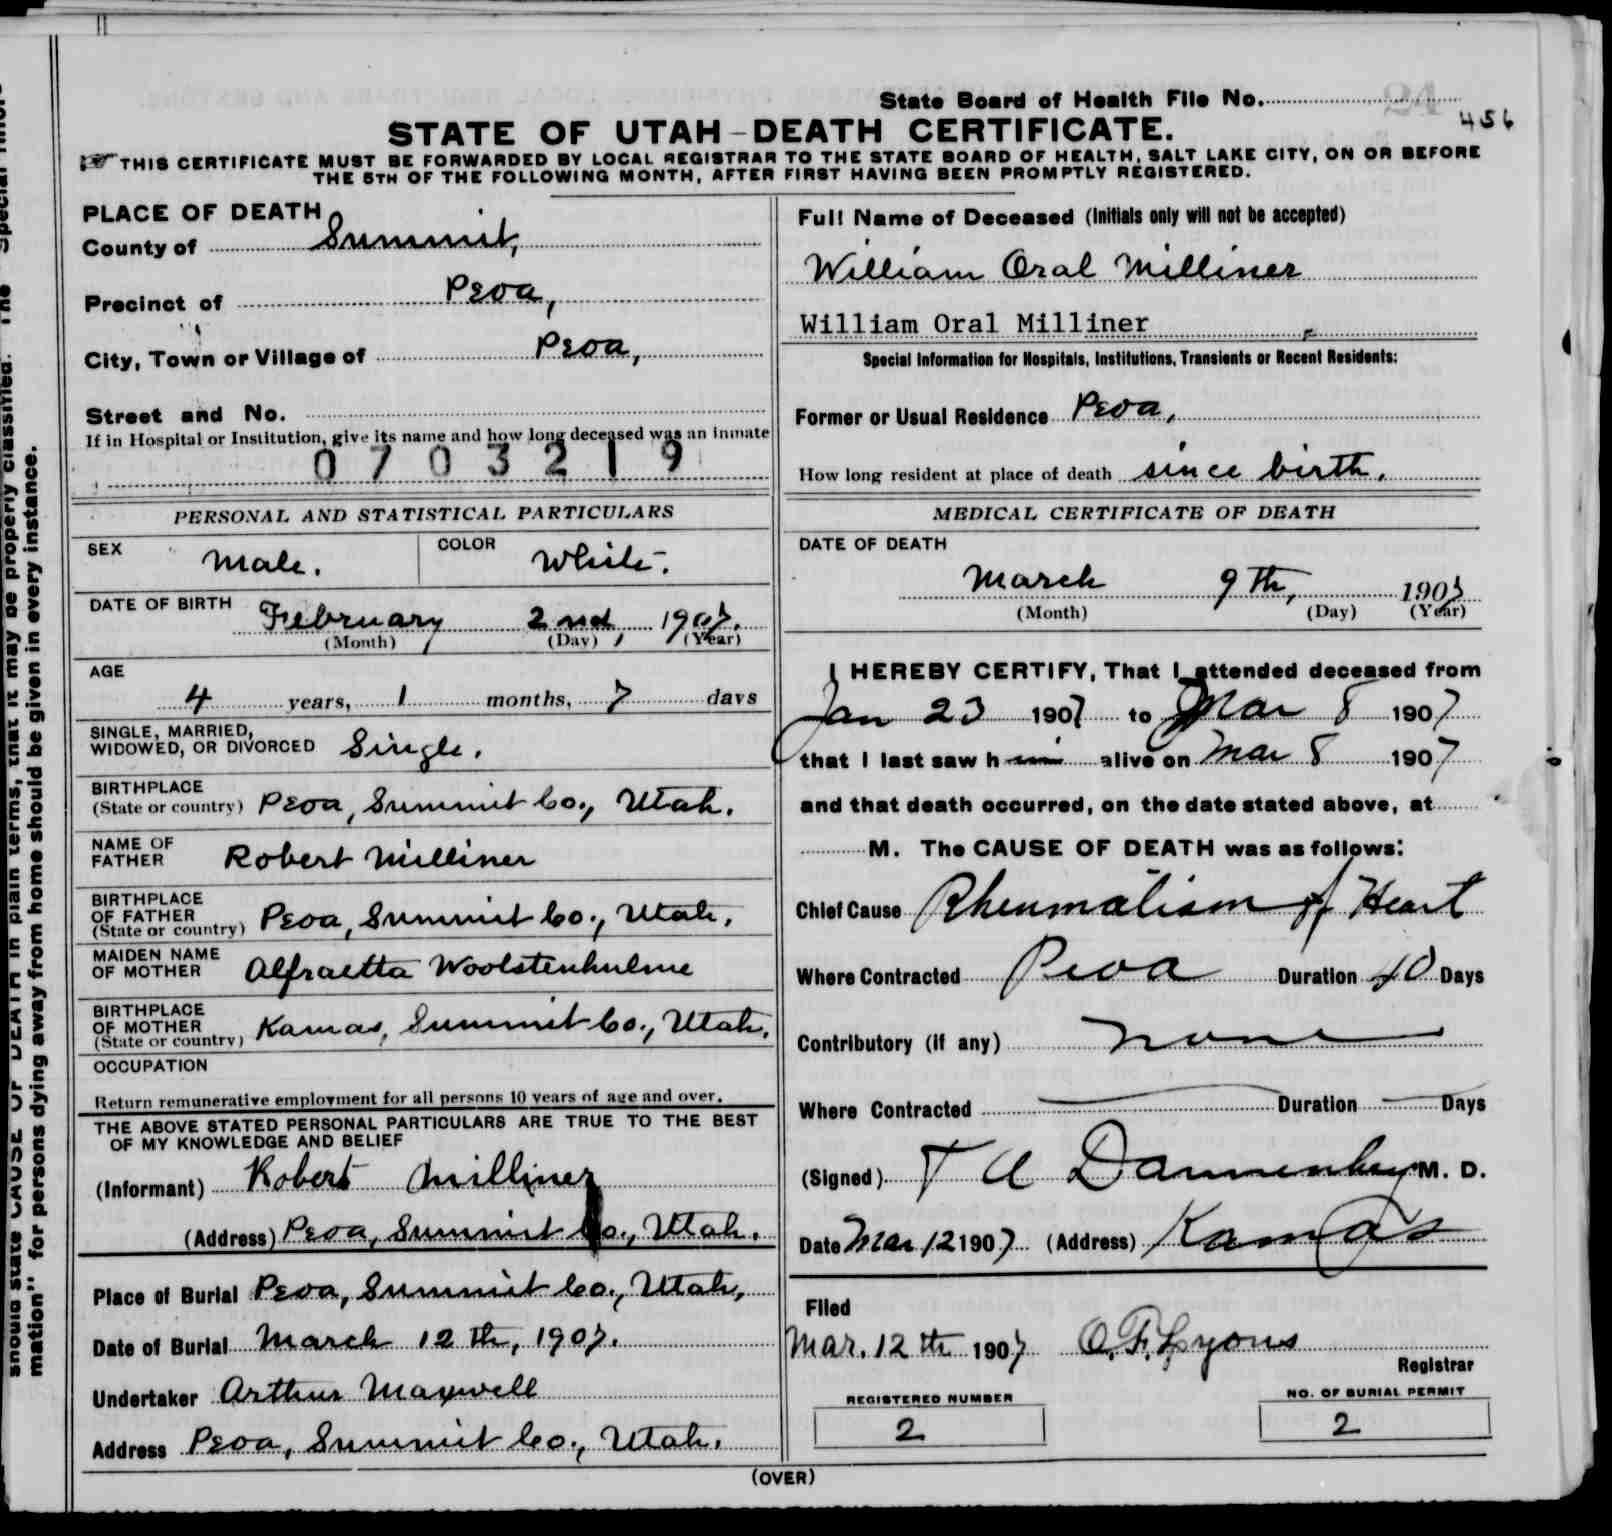 State Board of Health File No.
456
STATE OF UTAH-DEATH CERTIFICATE.
THIS CERTIFICATE MUST BE FORWARDED BY LOCAL REGISTRAR TO THE STATE BOARD OF HEALTH, SALT LAKE CITY, ON OR BEFORE
THE 5TH OF THE FOLLOWING MONTH, AFTER FIRST HAVING BEEN PROMPTLY REGISTERED.
PLACE OF DEATH
County of Summit,
Precinct of Peoa,
City, Town or Village of Peoa,
Street and No.
If in Hospital or Institution, give its name and how long deceased was an inmate
0703219
PERSONAL AND STATISTICAL PARTICULARS
SEX Male. COLOR White.
DATE OF BIRTH February 2nd, 1907.
(Month) (Day) (Year)
AGE
4 years, 1 months, 7 days
SINGLE, MARRIED,
WIDOWED, OR DIVORCED Single.
BIRTHPLACE
(State or country) Peoa, Summit Co., Utah.
NAME OF
FATHER Robert Milliner
BIRTHPLACE
OF FATHER
(State or country) Peoa, Summit Co., Utah.
MAIDEN NAME
OF MOTHER Alfraetta Woolstenhulme
BIRTHPLACE
OF MOTHER
(State or country) Kamas, Summit Co., Utah.
OCCUPATION
Return remunerative employment for all persons 10 years of age and over.
THE ABOVE STATED PERSONAL PARTICULARS ARE TRUE TO THE BEST
OF MY KNOWLEDGE AND BELIEF
(Informant) Robert Milliner
(Address) Peoa, Summit Co., Utah.
Place of Burial Peoa, Summit Co., Utah,
Date of Burial March 12th, 1907.
Undertaker Arthur Maxwell
Address Peoa, Summit Co., Utah.
Full Name of Deceased (Initials only will not be accepted)
William Oral Milliner
William Oral Milliner
Special Information for Hospitals, Institutions, Transients or Recent Residents:
Former or Usual Residence Peoa,
How long resident at place of death since birth.
MEDICAL CERTIFICATE OF DEATH
DATE OF DEATH
March 9th, 1907
(Month) (Day) (Year)
I HEREBY CERTIFY, That I attended deceased from
Jan 23 1907 to Mar 8 1907
that I last saw him alive on Mar 8 1907
and that death occurred, on the date stated above, at
M. The CAUSE OF DEATH was as follows:
Chief Cause Rheumatism of Heart
Where Contracted Peoa Duration 40 Days
Contributory (if any) none
Where Contracted Duration Days
(Signed) T A Dannenberg M. D.
Date Mar 12 1907 (Address) Kamas
Filed
Mar. 12th 1907 O.F. Lyons
Registrar
REGISTERED NUMBER
2
NO. OF BURIAL PERMIT
2
(OVER)
mation" for persons dying away from home should be given in every instance.